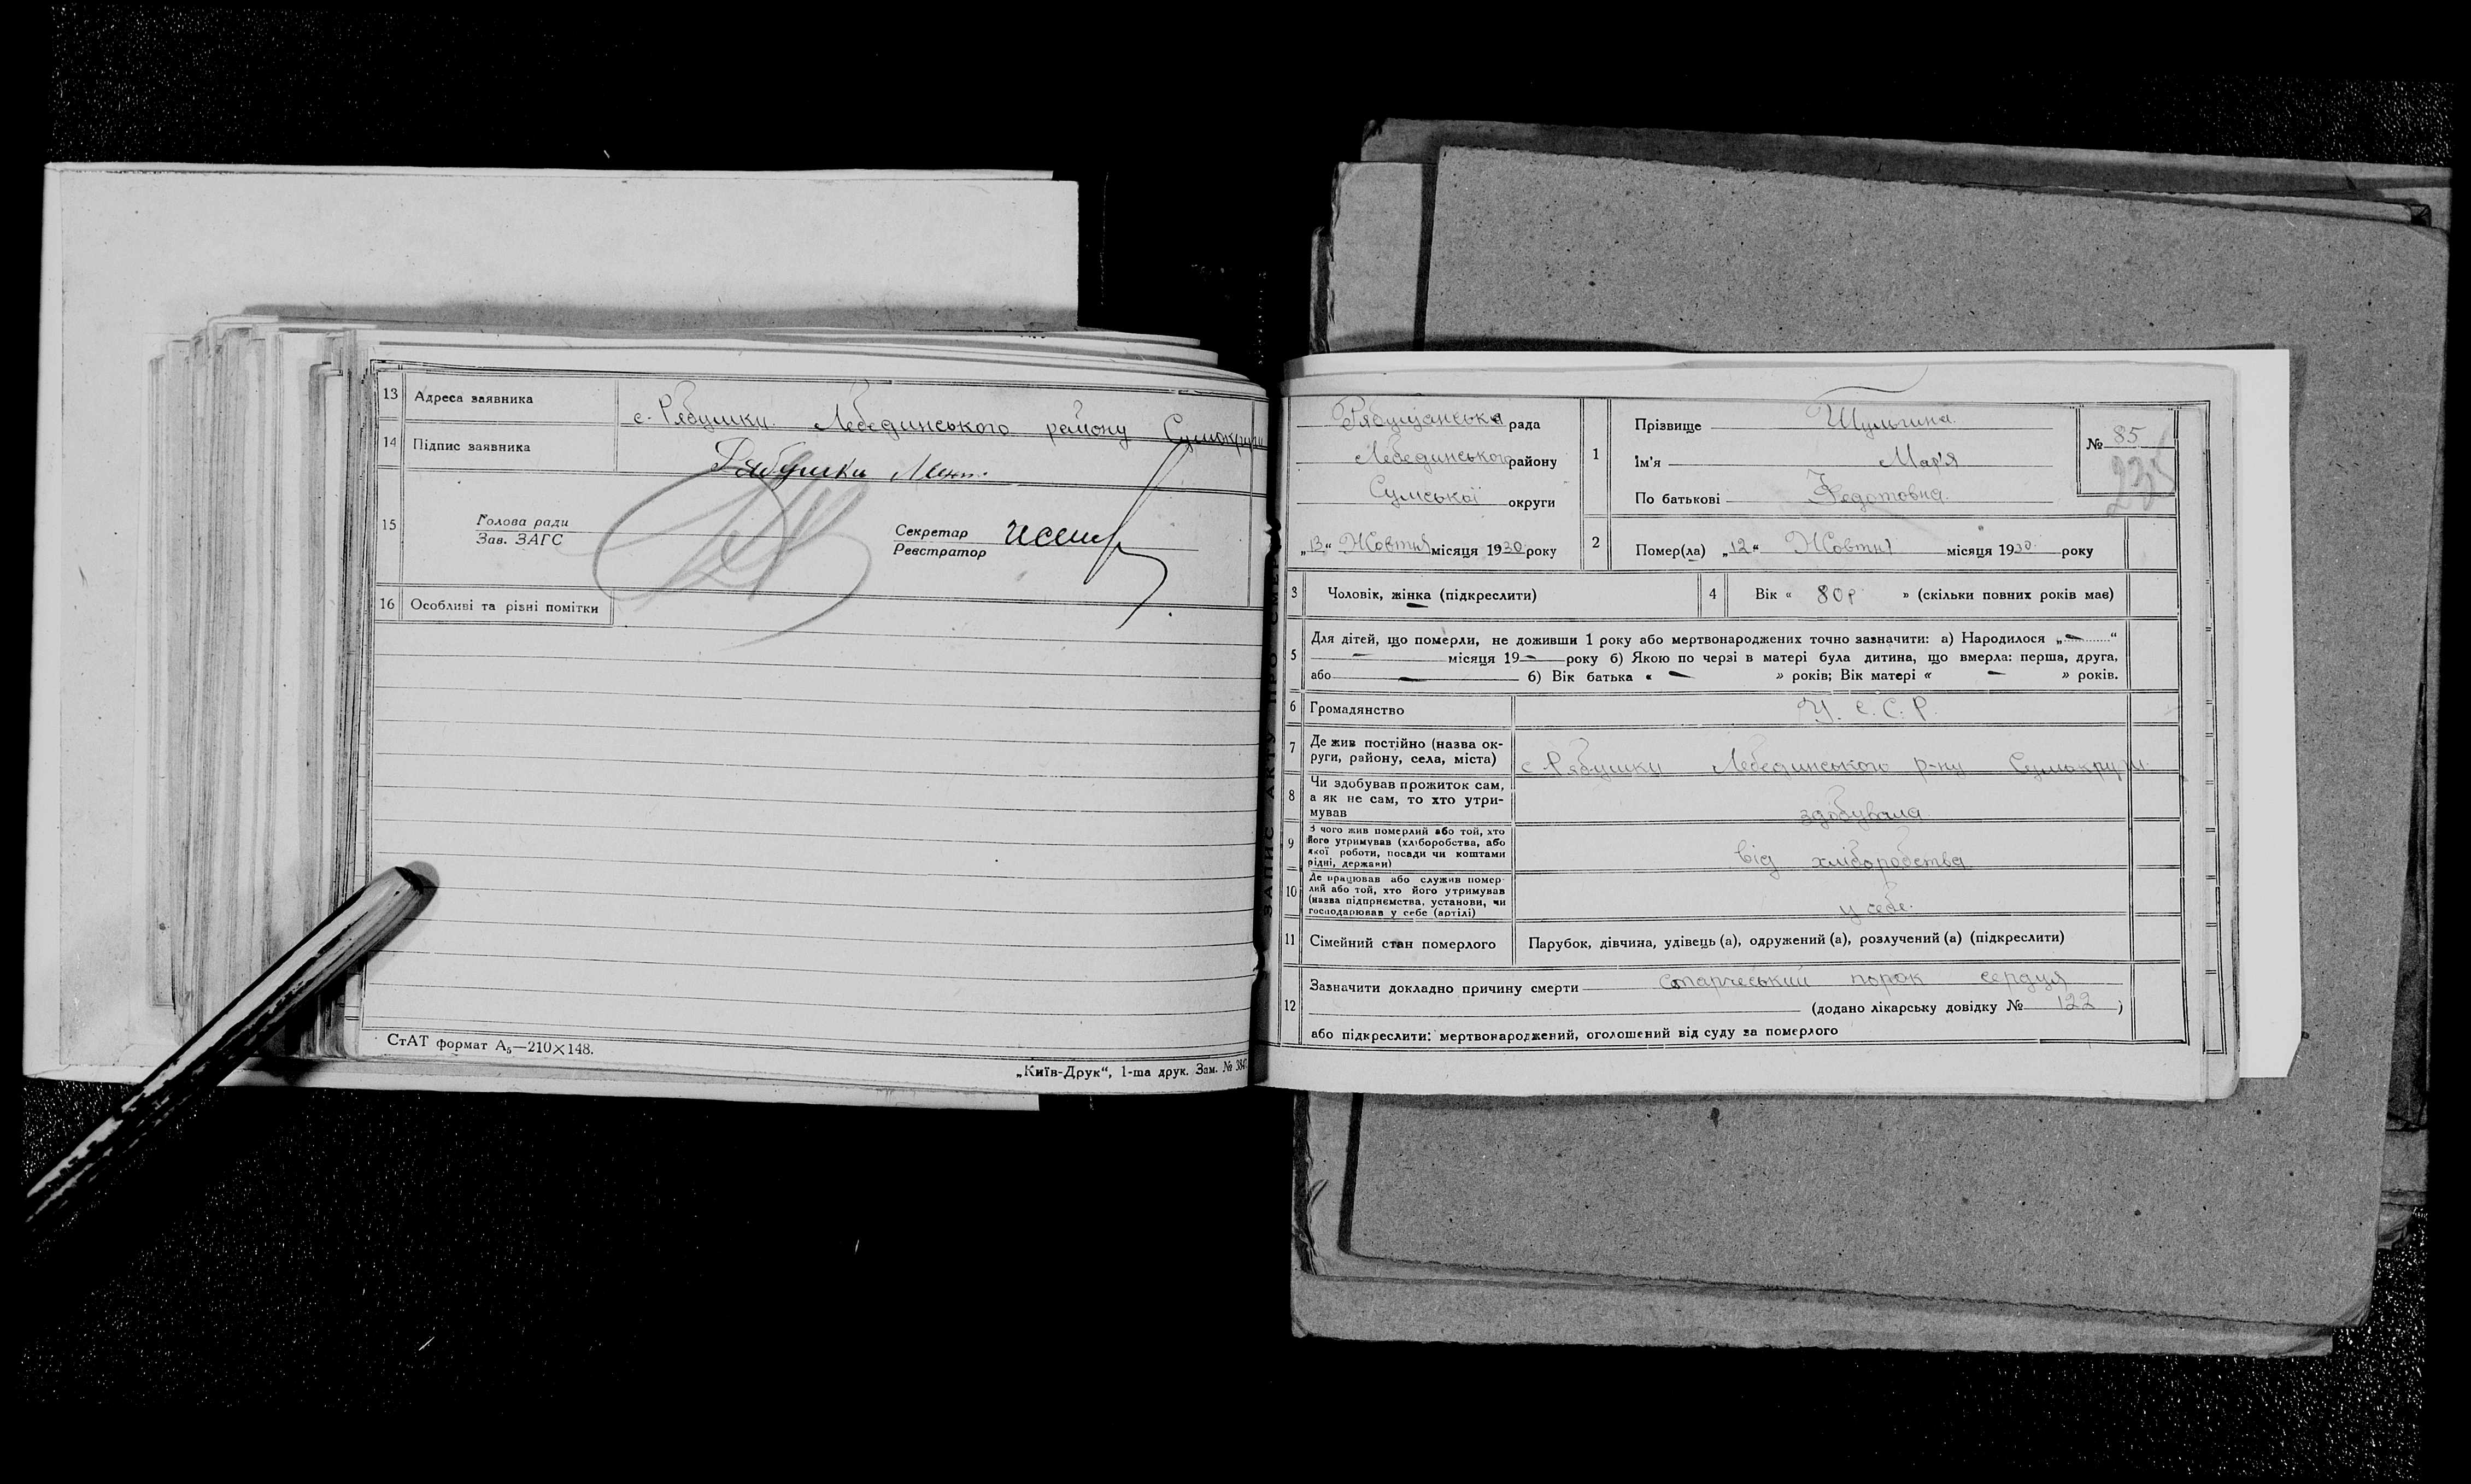 13 Адреса заявника с. Рябушки Лебединського району Сумокруги
14 Підпис заявника Рябушки
15 Голова ради
Зав. ЗАГС
Секретар
Реєстратор
16 Особливі та різні помітки
СтАТ формат А₅—210×148.
„Київ-Друк“, 1-ша друк. Зам. № 38
ЗАПИС АКТУ ПРО СМЕР
Рябушанська рада
Лебединського району
Сумської округи
„13“ Жовтня місяця 1930 року
1 Прізвище Шульгина
Ім'я Мар'я
По батькові Федотовна
№ 85
235
2 Помер(ла) „12“ Жовтня місяця 1930 року
3 Чоловік, жінка (підкреслити)
4 Вік « 80 р » (скільки повних років має)
5 Для дітей, що померли, не доживши 1 року або мертвонароджених точно зазначити: а) Народилося „—“
— місяця 19— року б) Якою по черзі в матері була дитина, що вмерла: перша, друга,
або — б) Вік батька « — » років; Вік матері « — » років.
6 Громадянство У. С. С. Р.
7 Де жив постійно (назва ок-
руги, району, села, міста) с Рябушки Лебединського р-ну Сумокруги
8 Чи здобував прожиток сам,
а як не сам, то хто утри-
мував здобувала
9 З чого жив померлий або той, хто
його утримував (хліборобства, або
якої роботи, посади чи коштами
рідні, держави) від хліборобства
10 Де працював або служив помер-
лий або той, хто його утримував
(назва підприємства, установи, чи
господарював у себе (артілі) у себе.
11 Сімейний стан померлого Парубок, дівчина, удівець (а), одружений (а), розлучений (а) (підкреслити)
12 Зазначити докладно причину смерти старческий порок сердця
(додано лікарську довідку № 122)
або підкреслити: мертвонароджений, оголошений від суду за померлого